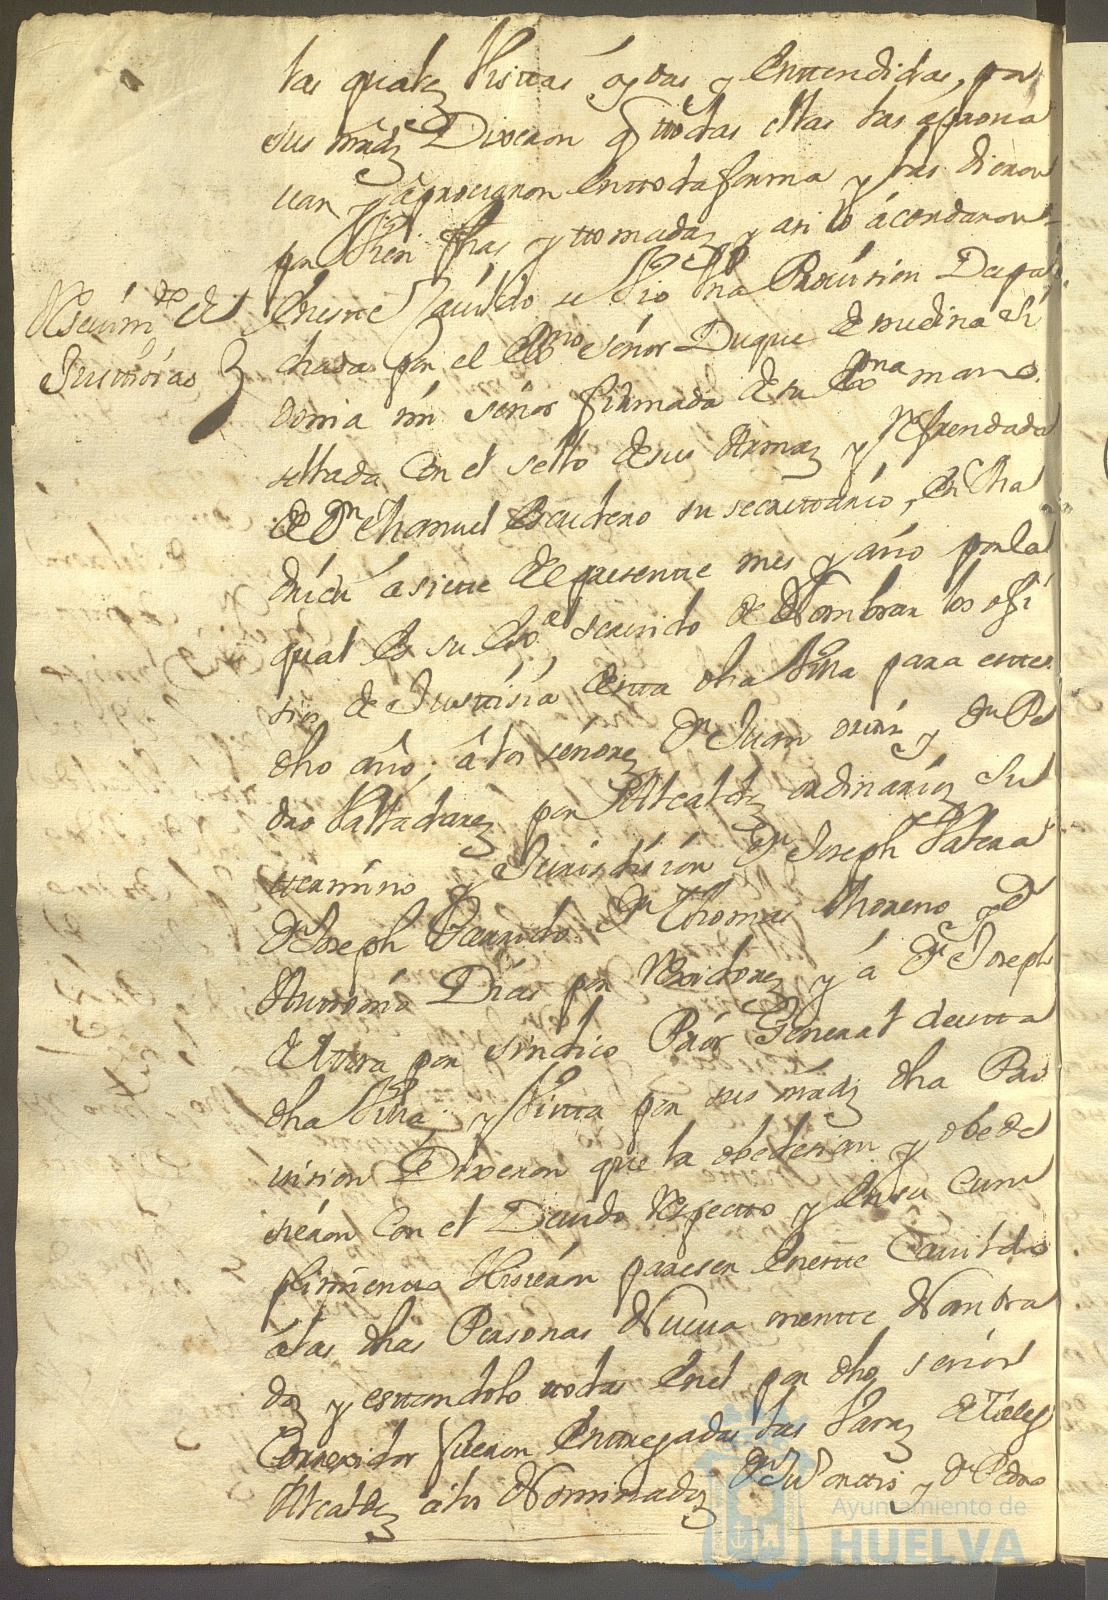 las quales Vistas oydas y Entendidas, por
sus mrds Dixeron q todas ellas las aprova
van y aprovaron En toda forma y las dieron
por Bien fhas y tomadas y asi lo acordaron
Resevim.to de
Justisias
En este Cavildo se Vio Vna Provision Despa
chada por el Ex.mo señor Duque de medina Si
donia mi señor firmada de su Ex.ma mano
sellada Con el sello de sus Armas y Refrendada
de Dn Manuel Escudero su secretario, En
a siete del presente mes y año por la
qual Es su Ex.a servido de Nombrar los ofi
sios de Justisia desta dha Villa para este
dho año, a los señores Dn Juan y Dn Pe
dro Valladares por Alcaldes ordinarios Su
termino y Jurisdision Dn Joseph
Dn Joseph Garrido Dn Thomas Moreno y Dn
Antonio Dias por Rexidores y a Dn Joseph
de por sindico Pror General desta
dha Villa y Vista por sus mrds dha Pro
vision Dixeron que la obedesian y obede
sieron Con el Devido Respecto y En su Cum
plimiento Hisieron pareser En este Cavildo
a las dhas Personas Nueva mente Nombra
das y estandolo todas En el por dho señor
Correxidor fueron Entregadas las Varas de Tales
Alcaldes a los Nominados Dn Ju° y Dn Pedro
Ayuntamiento de
HUELVA